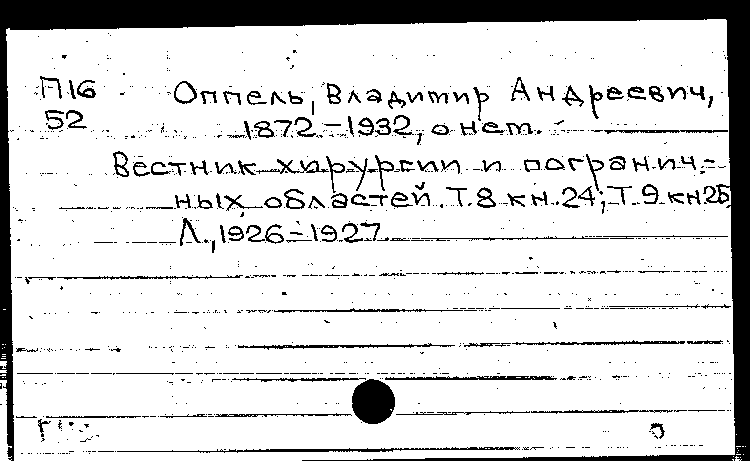 П16 Оппель, Владимир Андреевич,
52 1872-1932, о нем.
Вестник хирургии и погранич-
ных областей. Т.8 кн.24; Т.9 кн25
Л., 1926-1927.